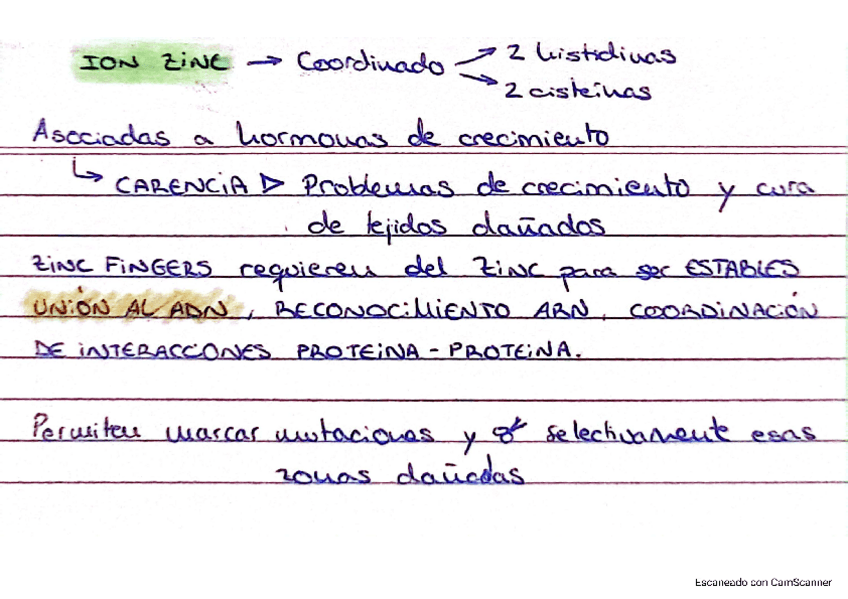 ION ZINC → Coordinado → 2 histidinas
→ 2 cisteinas
Asociadas a hormonas de crecimiento
↳ CARENCIA ▷ Problemas de crecimiento y cura
de tejidos dañados
ZINC FINGERS requieren del Zinc para ser ESTABLES
UNIÓN AL ADN, RECONOCIMIENTO ARN, COORDINACIÓN
DE INTERACCIONES PROTEINA - PROTEINA.
Permiten marcar mutaciones y selectivamente esas
zonas dañadas
Escaneado con CamScanner